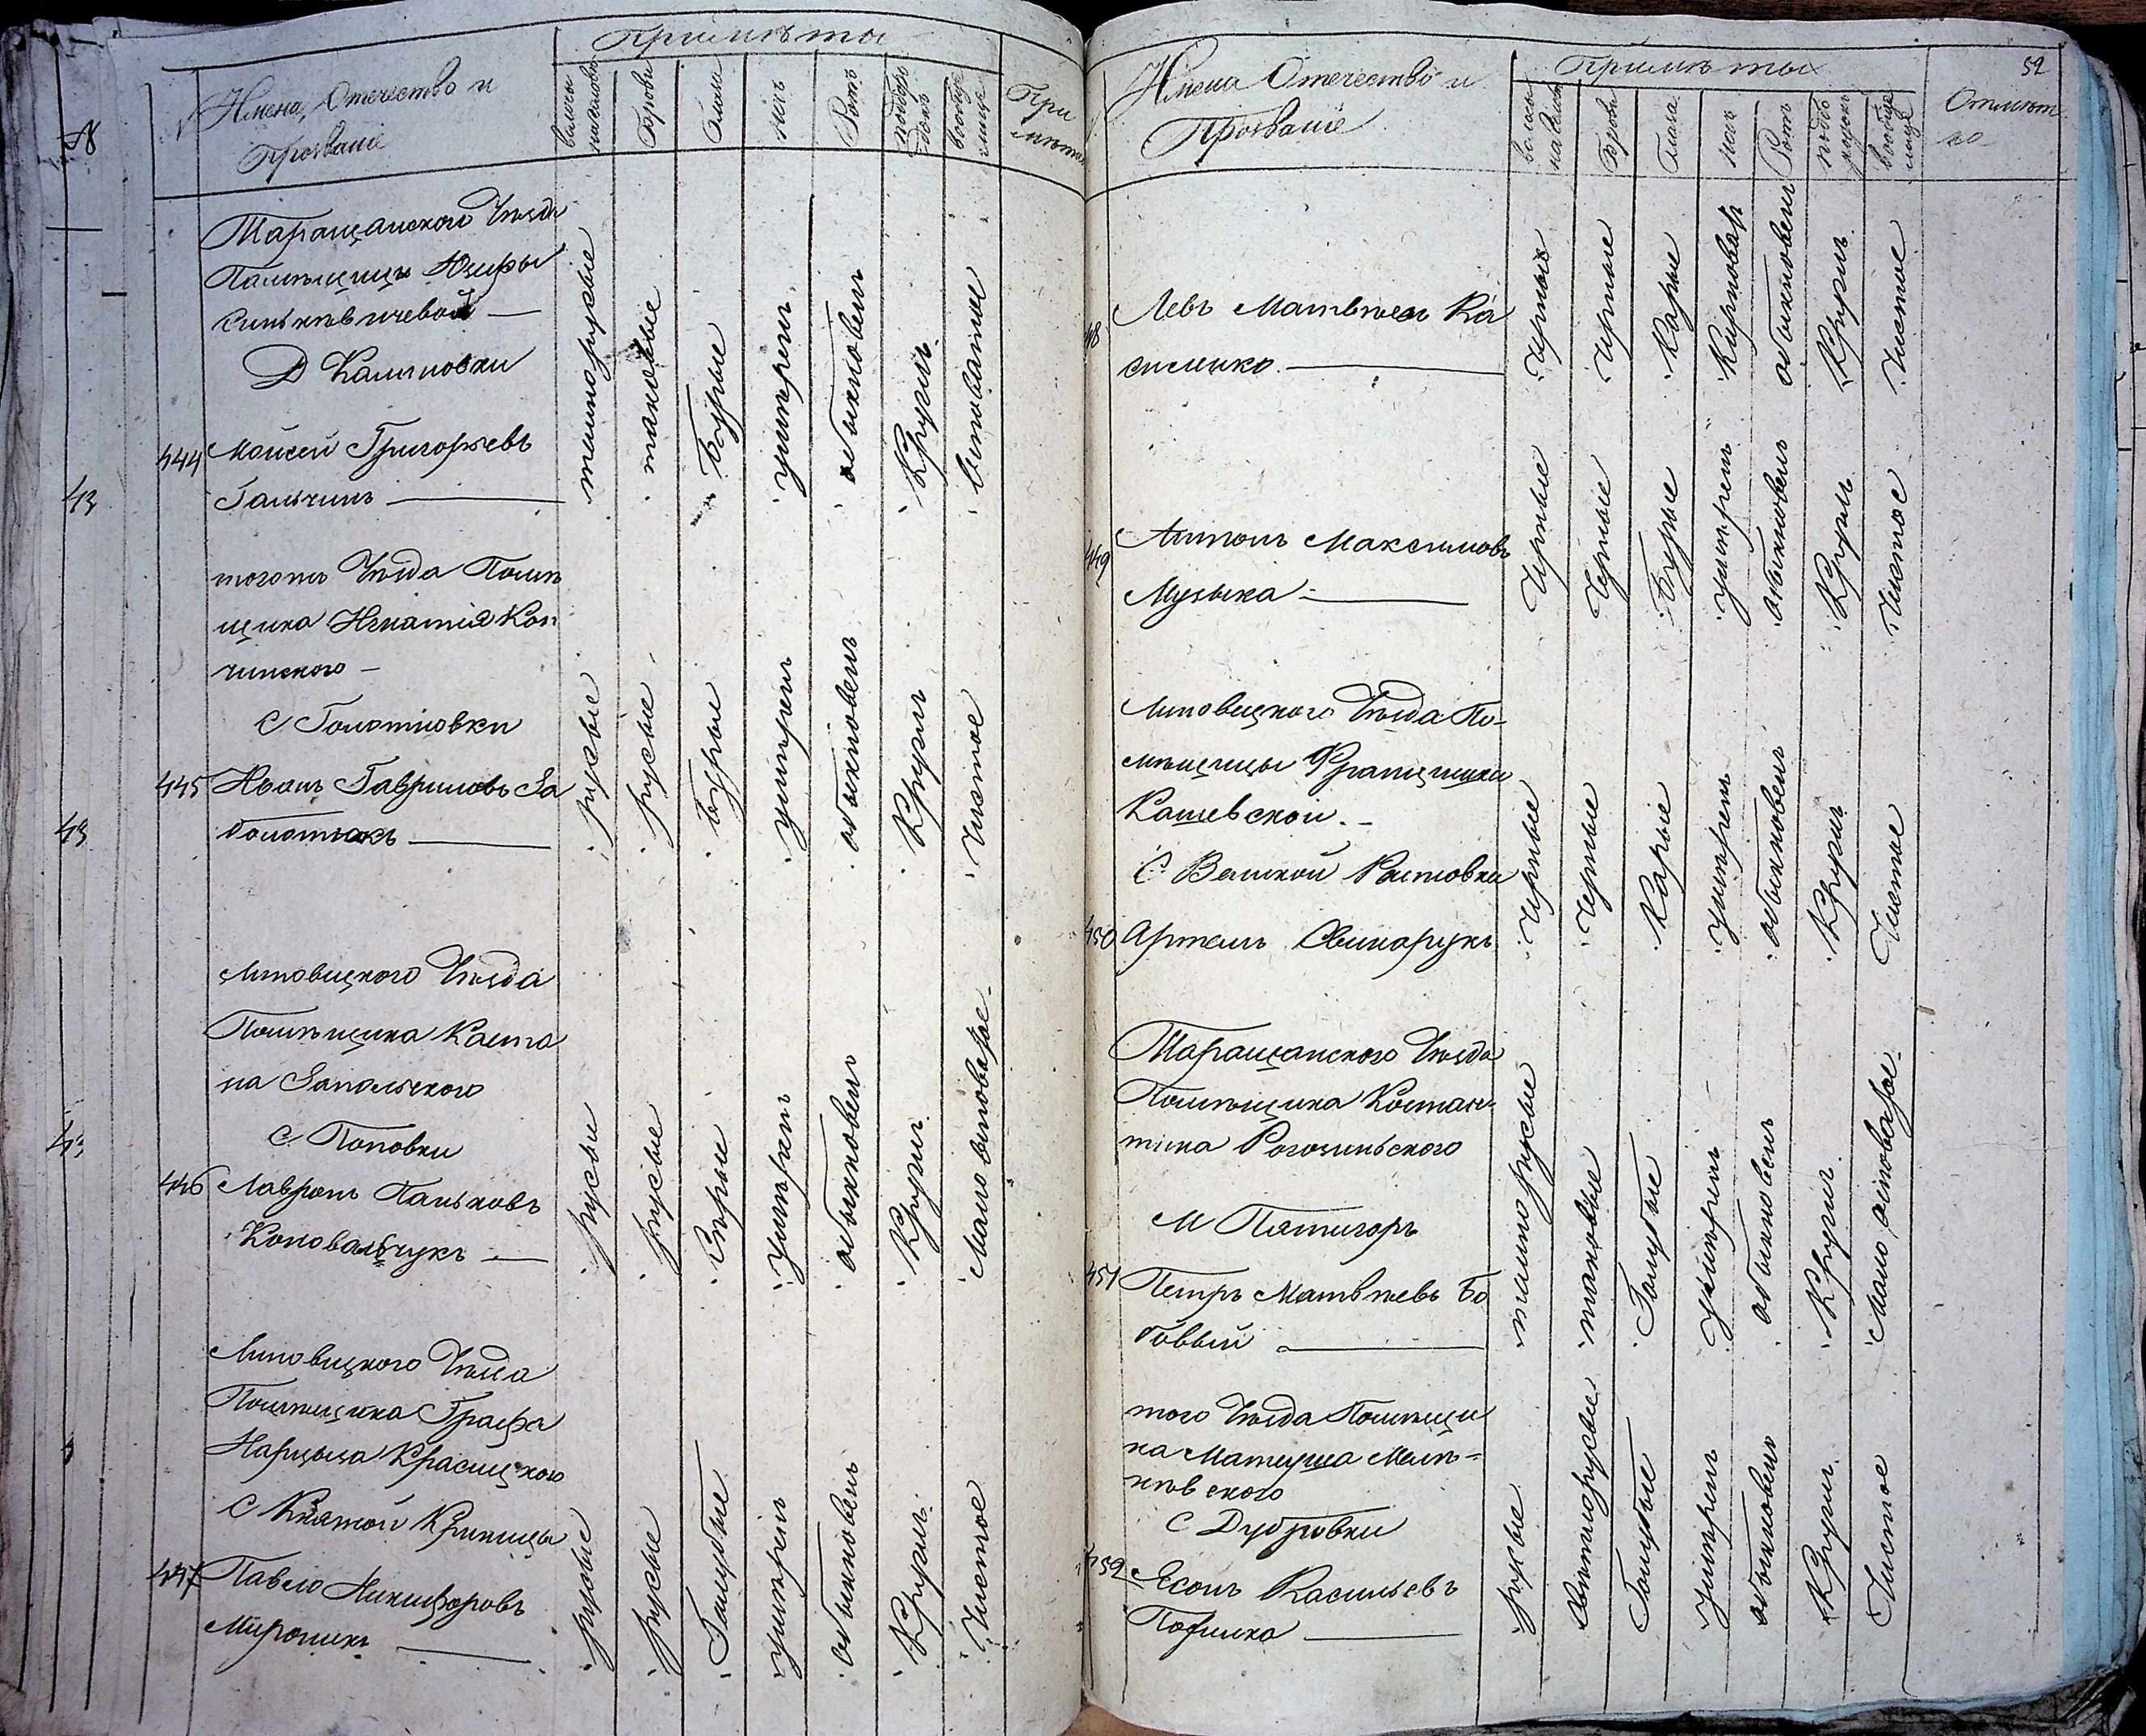 Примѣты
Имена, Отечество и
Прозваніе
волосы
на головѣ
Брови
Глаза
носъ
Ротъ
подборо
докъ
вообще
лице
При
мѣты
Таращанского Уѣзда
Помѣщицы Юзефы
Д Калиновки
444 Мойсей Григорьевъ
Гальчинъ
темнорусые
таковые
Бурые
умѣрен
обыкновен
Кругл.
43
тогожъ Уѣзда Помѣ
щика Игнатія Коп
чинского
С Голотиовки
445 Иванъ Гавриловъ За
болотнокъ
русые
русые
бурые
умѣрен
обыкновен
Кругл
Чистое
43
Липовецкого Уѣзда
Помѣщика Каета
на Запольского
С Поповки
446 Лавронъ Паньковъ
Коновальчукъ
русые
русые
Сѣрые
Умѣрен
обыкновен
Кругл.
Мало осповатое
43
Липовецкого Уѣзда
Помѣщика Графа
Нарцыза Красицкого
С Княжой Криницы
447 Павло Никифоровъ
Мироникъ
русые
русые
Голубые
умѣрен
обыкновен
Кругл.
Чистое
52
Имена Отечество и
Прозваніе
Примѣты
волосы
на голов
Брови
Глаза
носъ
Ротъ
подбо
родок
вообще
лице
Отмѣт
ка
448 Левъ Матвѣевъ Ка
сиенко
Черные
черные
Карые
Курноват
обыкновен
Кругл.
Чистое
449 Антонъ Максимовъ
Музыка
Черные
Черные
Бурые
умѣрен
обыкновен
Кругл.
Чистое
Липовецкого Уѣзда По-
мѣщицы Францишки
Кашевской.
С Великой Ростовки
450 Артемъ Свинарукъ
Черные
Черные
Карые
Умѣрен
обыкновен
Кругл.
Чистое
Таращанского Уѣзда
Помѣщика Костан-
тина Рогозинского
М Пятигоръ
451 Петръ Матвѣевъ Бо
бовый
темнорусые
таковые
Голубые
Умѣрен
обыкновен
Кругл.
Мало осповатое
того Уѣзда Помѣщи
ка Матеуша
С Дубровки
452 Ясонъ Касильевъ
русые
Свѣтлорусые
Голубые
Умѣрен
обыкновен
Кругл.
Чистое